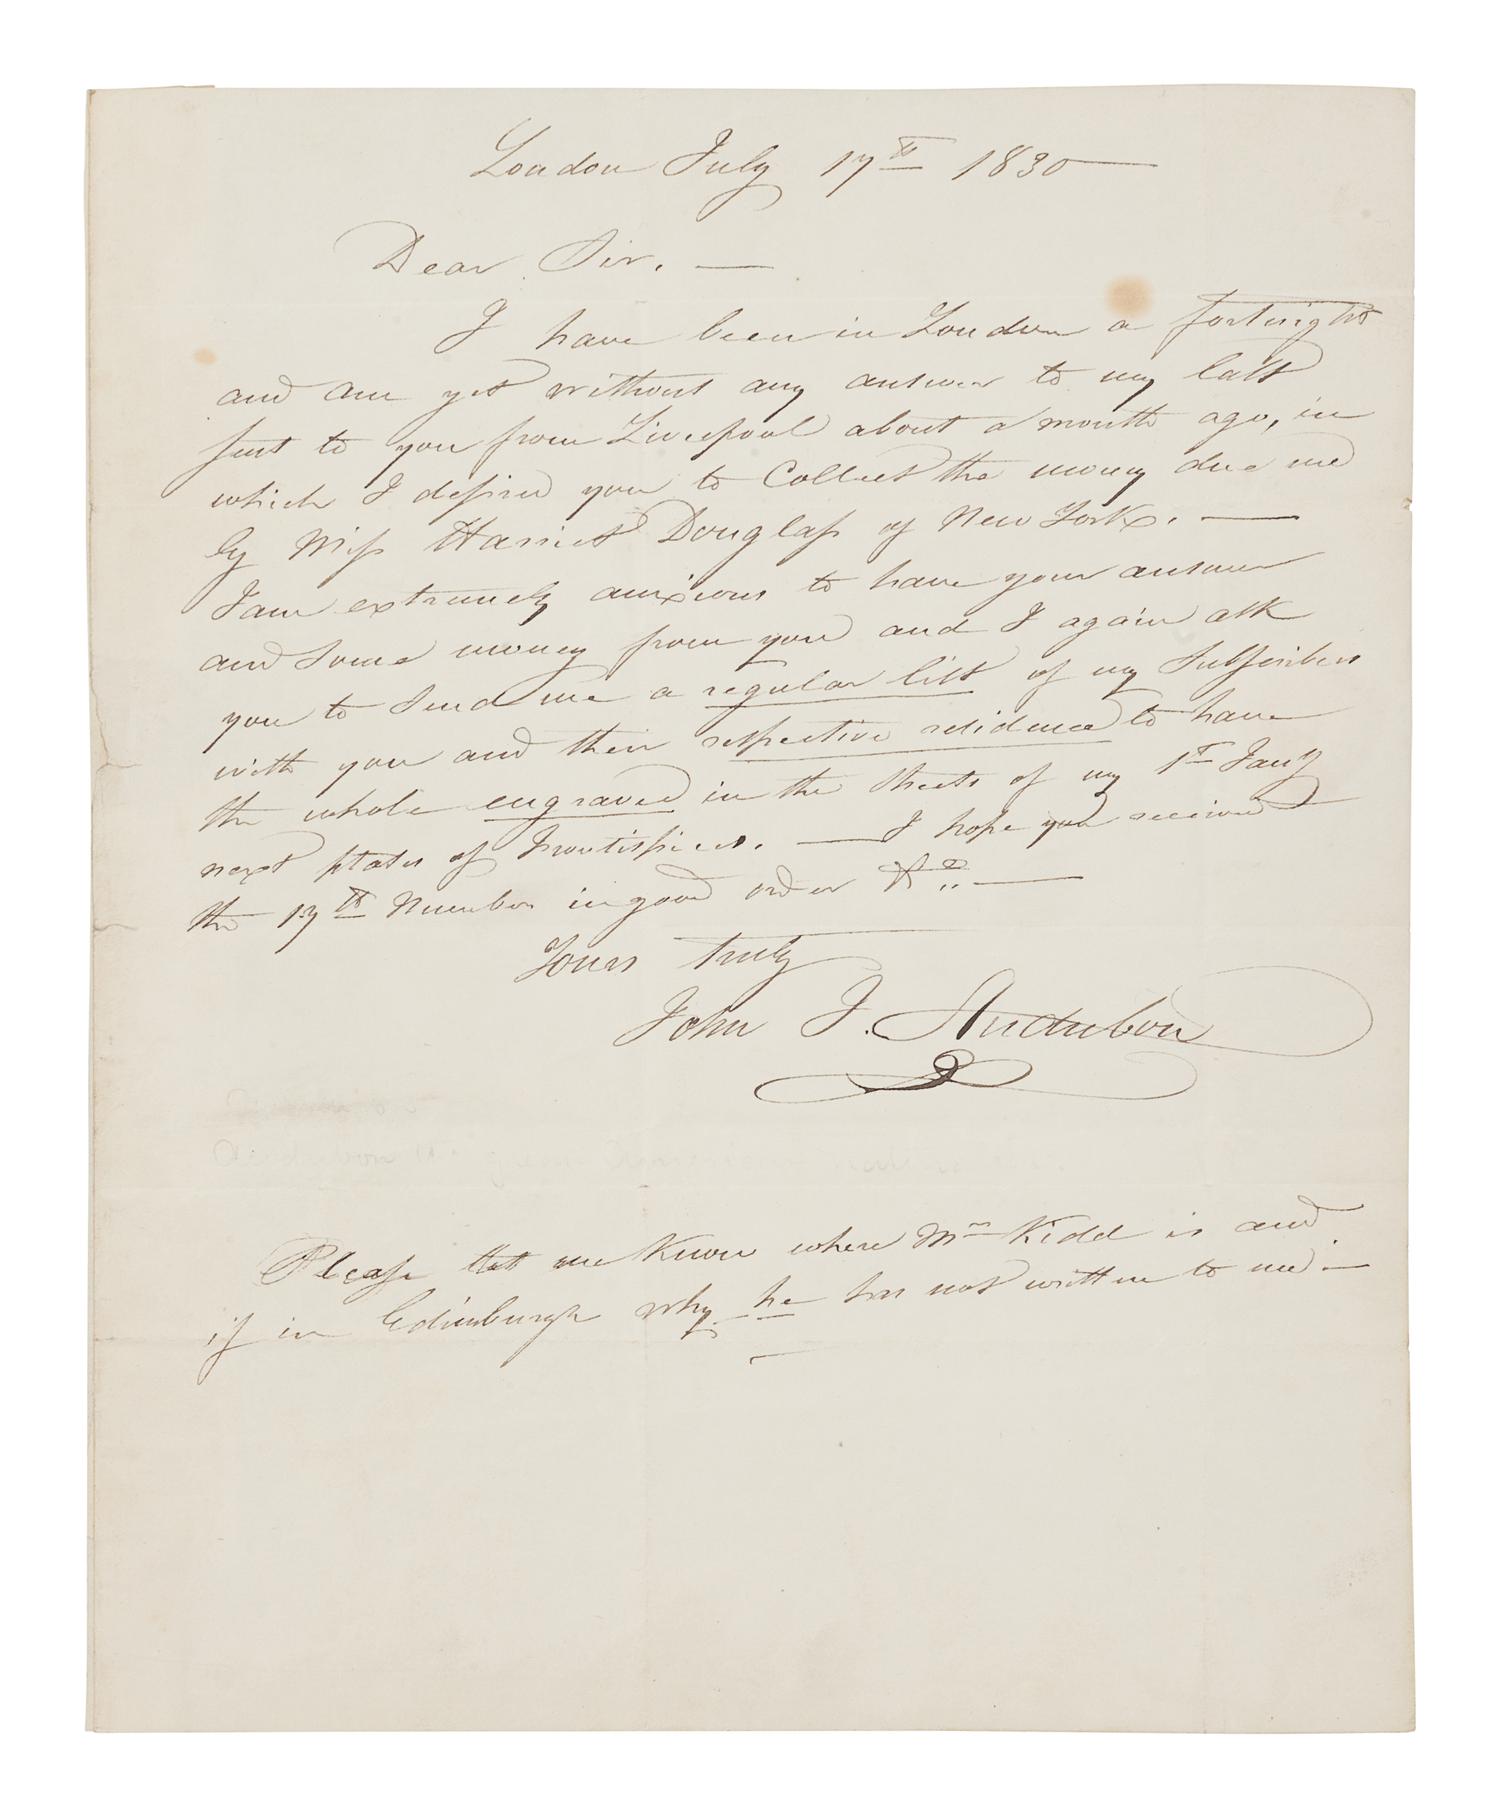 London July 17th 1830 —
Dear Sir. —
I have been in London a fortnight
and am yet without any answer to my last
sent to you from Liverpool about a month ago, in
which I desired you to Collect the money due me
by Miss Harriet Douglass of New York. —
I am extremely anxious to have your answer
and some money from you and I again ask
you to send me a regular list of my Subscribers
with you and their respective residence to have
the whole engraved in the sheets of my 1st Jany
next plates of Frontispieces. — I hope you received
the 17th Number in good order &c. —
Yours truly
John J. Audubon
Audubon the great American
Please let me know where Mr Kidd is and
if in Edinburgh why he has not written to me. —